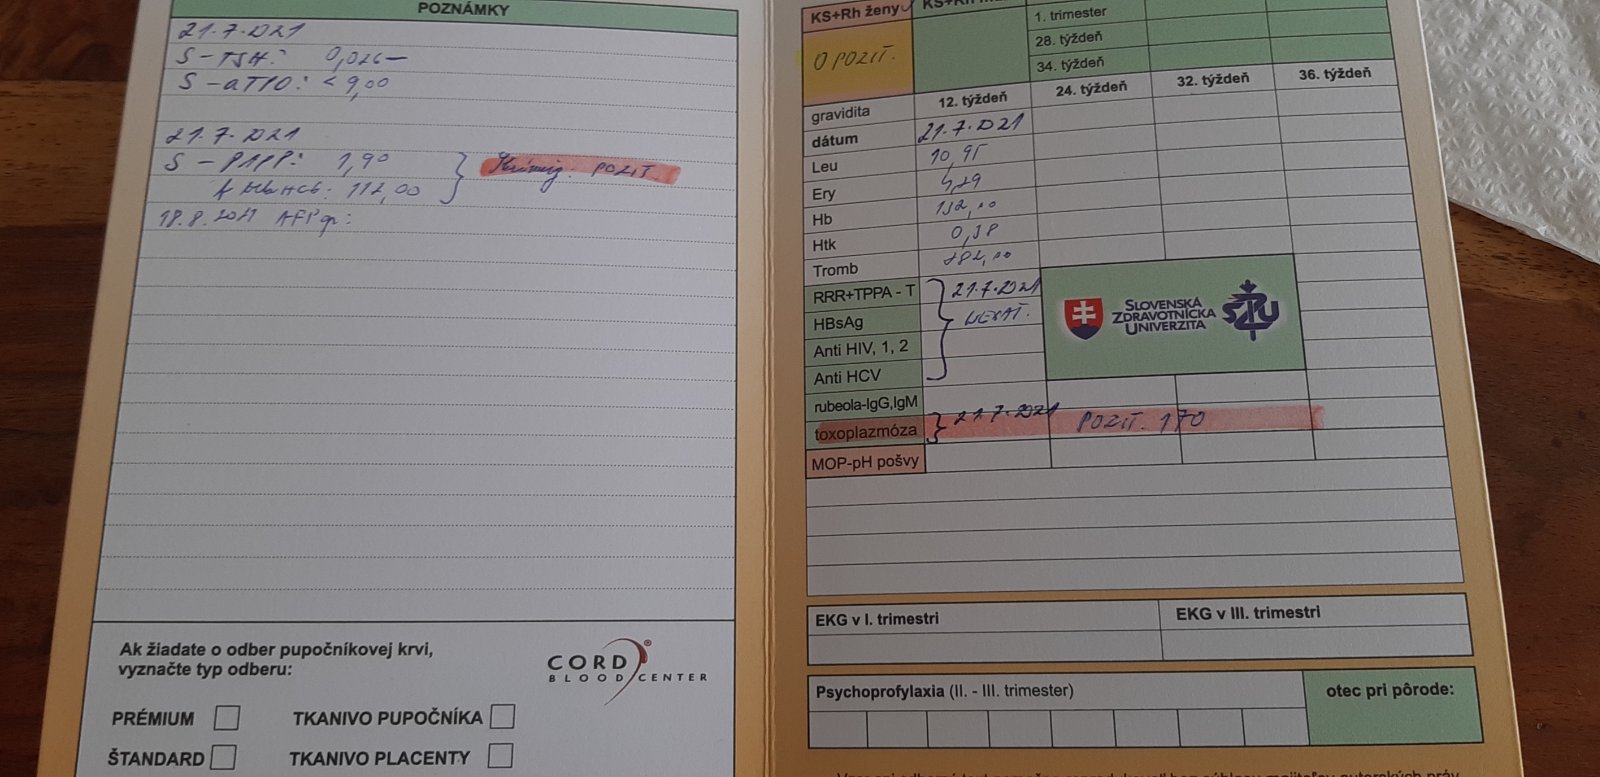 POZNÁMKY
21.7.2021
S-TSH: 0,026-
S-aTPO: < 9,00
21.7.2021
S-PAPP: 1,90
POZIT.
112,00
18.8.2021 AFP
Ak žiadate o odber pupočníkovej krvi,
vyznačte typ odberu:
CORD
BLOOD CENTER
PRÉMIUM
TKANIVO PUPOČNÍKA
ŠTANDARD
TKANIVO PLACENTY
KS+Rh ženy
O POZIT.
1. trimester
28. týždeň
34. týždeň
gravidita 12. týždeň 24. týždeň 32. týždeň 36. týždeň
dátum 21.7.2021
Leu 10,95
Ery 4,29
Hb 132,00
Htk 0,38
Tromb 282,00
RRR+TPPA - T 21.7.2021
HBsAg NEGAT.
Anti HIV, 1, 2
Anti HCV
SLOVENSKÁ
ZDRAVOTNÍCKA
UNIVERZITA
SZU
rubeola-IgG,IgM
toxoplazmóza 21.7.2021 POZIT. 170
MOP-pH pošvy
EKG v I. trimestri
EKG v III. trimestri
Psychoprofylaxia (II. - III. trimester)
otec pri pôrode: